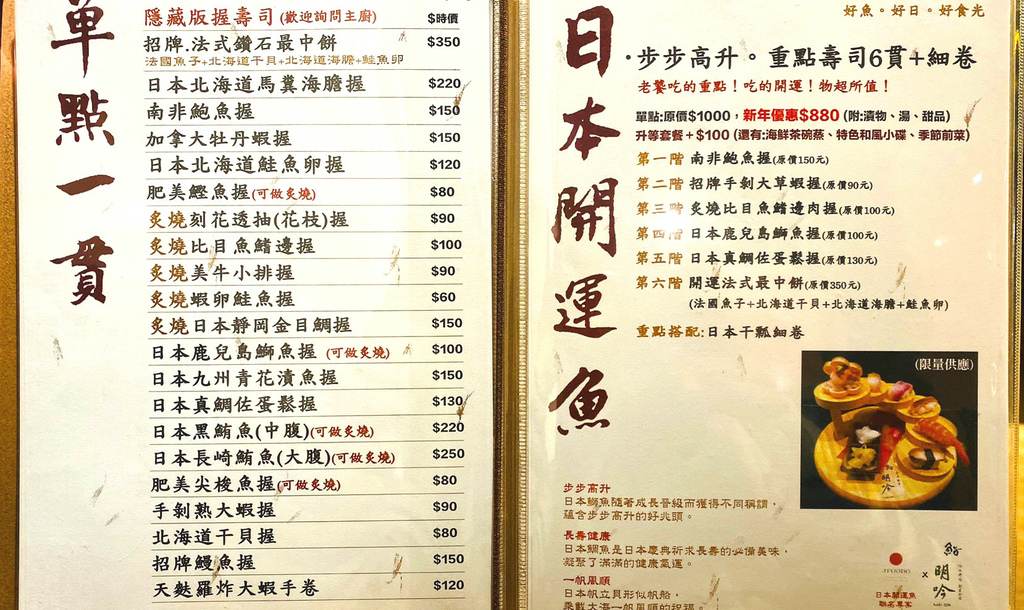 單點一貫
隱藏版握壽司(歡迎詢問主廚) $時價
招牌.法式鑽石最中餅 $350
法國魚子+北海道干貝+北海道海膽+鮭魚卵
日本北海道馬糞海膽握 $220
南非鮑魚握 $150
加拿大牡丹蝦握 $150
日本北海道鮭魚卵握 $120
肥美鰹魚握(可做炙燒) $80
炙燒刻花透抽(花枝)握 $90
炙燒比目魚鰭邊握 $100
炙燒美牛小排握 $90
炙燒蝦卵鮭魚握 $60
炙燒日本靜岡金目鯛握 $150
日本鹿兒島鰤魚握 (可做炙燒) $100
日本九州青花漬魚握 $150
日本真鯛佐蛋鬆握 $130
日本黑鮪魚(中腹)(可做炙燒) $220
日本長崎鮪魚(大腹)(可做炙燒) $250
肥美尖梭魚握(可做炙燒) $80
手剝熟大蝦握 $90
北海道干貝握 $80
招牌鰻魚握 $150
天麩羅炸大蝦手卷 $120
日本開運魚
好魚。好日。好食光
·步步高升。重點壽司6貫+細卷
老饕吃的重點!吃的開運!物超所值!
單點:原價$1000,新年優惠$880(附:漬物、湯、甜品)
升等套餐+$100(還有:海鮮茶碗蒸、特色和風小碟、季節前菜)
第一階 南非鮑魚握(原價150元)
第二階 招牌手剝大草蝦握(原價90元)
第三階 炙燒比目魚鰭邊肉握(原價100元)
第四階 日本鹿兒島鰤魚握(原價100元)
第五階 日本真鯛佐蛋鬆握(原價130元)
第六階 開運法式最中餅(原價350元)
(法國魚子+北海道干貝+北海道海膽+鮭魚卵)
重點搭配:日本干瓢細卷
(限量供應)
明吟
步步高升
日本鰤魚隨著成長晉級而獲得不同稱謂,
蘊含步步高升的好兆頭。
長壽健康
日本鯛魚是日本慶典祈求長壽的必備美味,
凝聚了滿滿的健康氣運。
一帆風順
日本帆立貝形似帆船,
乘載大海一帆風順的祝福。
JFOODO
×
明吟
日本開運魚
聯名專案